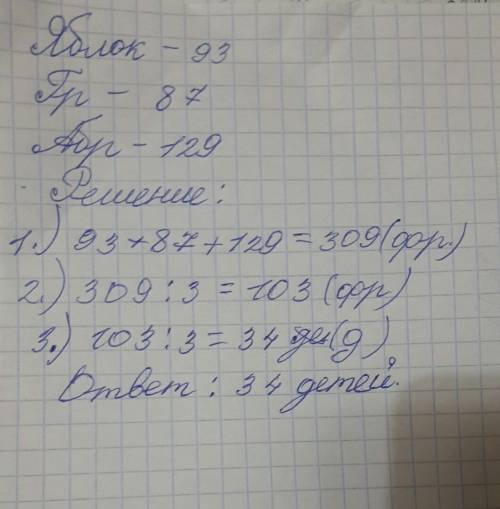 Яблок - 93
Гр - 87
Абр - 129
Решение:
1.) 93+87+129=309(фр.)
2.) 309:3=103(фр)
3.) 103:3=34 (д)
Ответ: 34 детей.